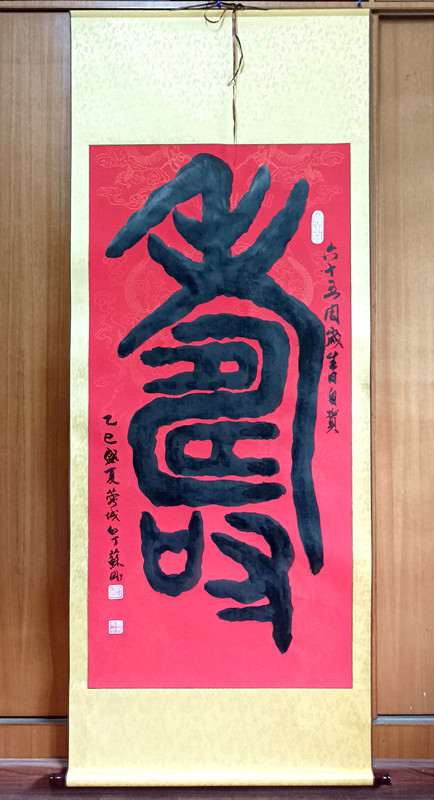 六十五周歲生日自賀
壽
乙巳盛夏蓉城白丁蘇剛